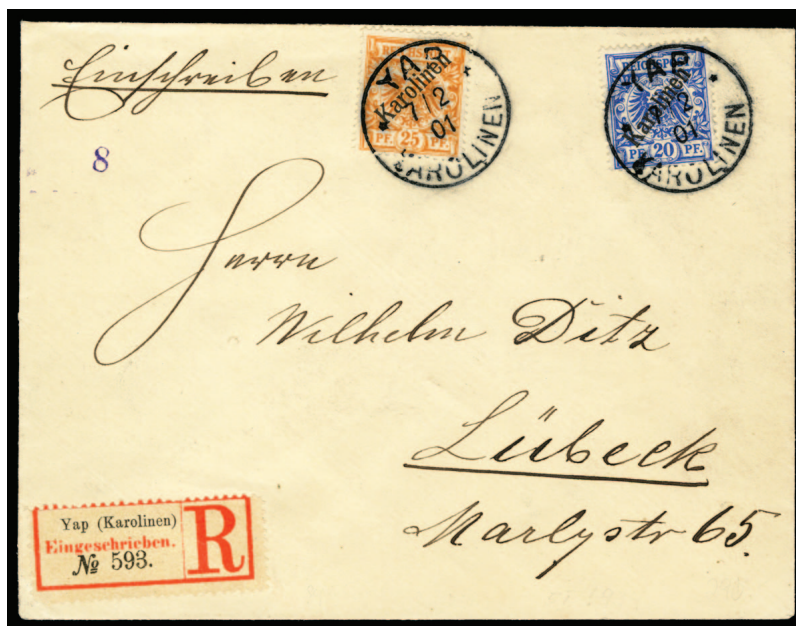 Einschreiben
8
REICHSPOST
Karolinen
PF. 25 PF.
YAP
7/2
01
KAROLINEN
REICHSPOST
Karolinen
PF. 20 PF.
YAP
7/2
01
KAROLINEN
Herrn
Wilhelm Ditz
Lübeck
Marlystr 65.
Yap (Karolinen)
Eingeschrieben.
№ 593.
R